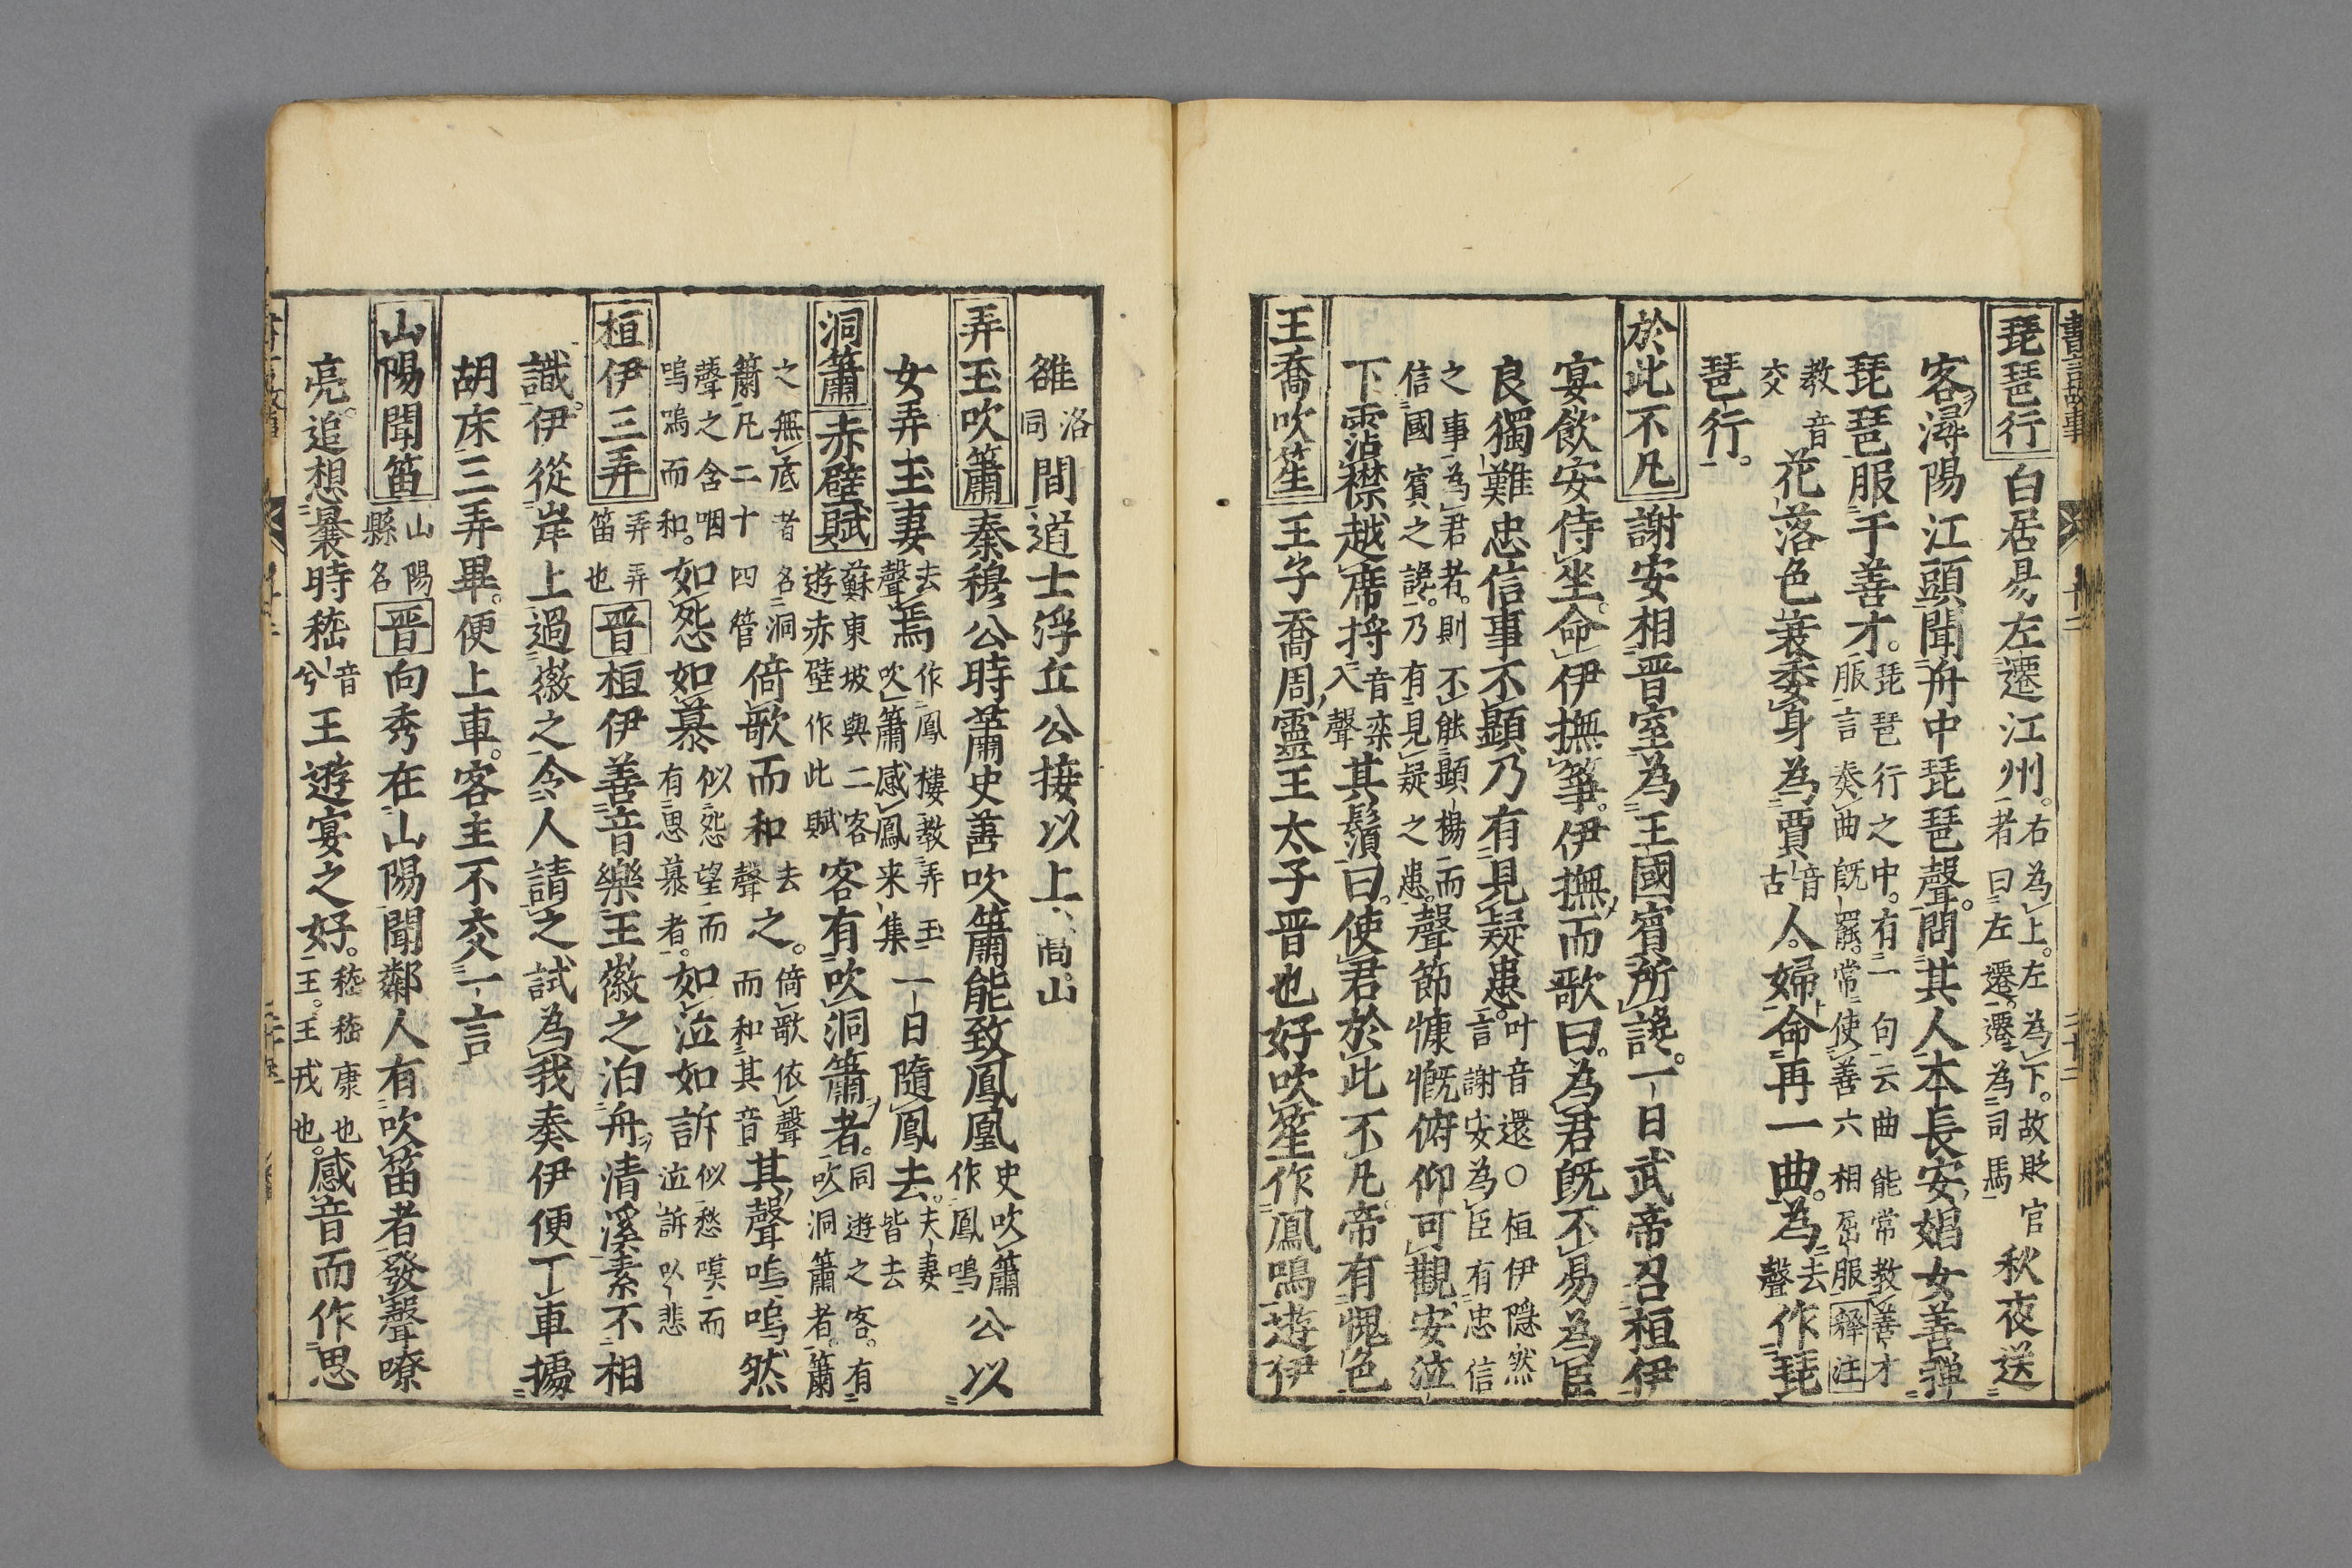 書言故事
琵琶行 白居易左遷江州。右為上。左為下。故貶官者曰左遷。遷為司馬 秋夜送
客潯陽江頭聞舟中琵琶聲。問其人本長安娼女善弾
琵琶服于善才。琵琶行之中。有一句云曲能常教善才服言奏曲既罷。常使善六相屈服 釋注
教音交 花落色衰委身為賈音古人。婦命再一曲。為去聲作琵
琶行。
於此不凡 謝安相晋室為王國賓所讒。一日武帝召桓伊
宴飲安侍坐。命伊撫箏。伊撫而歌曰。為君既不易為臣
良獨難忠信事不顯乃有見疑患。叶音還○桓伊隠然言謝安為臣有忠信
之事為君者。則不能顯揚而信國賓之讒。乃有見疑之患。聲節慷慨俯仰可觀。安泣
下霑襟越席捋音栾入聲其鬚曰。使君於此不凡。帝有愧色
王喬吹笙 王子喬周靈王太子晋也好吹笙作鳳鳴遊伊
雒洛同間道士浮丘公接以上嵩山
弄玉吹簫 秦穆公時蕭史善吹簫能致鳳凰史吹簫作鳳鳴公以
女弄玉妻去聲焉作鳳樓教弄玉吹簫感鳳来集一日隨鳳去。夫妻皆去
洞簫 赤壁賦 蘇東坡與二客遊赤壁作此賦 客有吹洞簫者。同遊之客。有吹洞簫者。簫
之無底者名洞簫凡二十四管 倚歌而和去聲之。倚歌依聲而和其音其聲嗚嗚然
聲之含咽嗚嗚而和。如怨如慕似怨望而有思慕者。如泣如訴似愁嘆而泣訴以悲
桓伊三弄 弄弄笛也 晋 桓伊善音樂王徽之泊舟清溪素不相
識。伊從岸上過徽之令人請之試為我奏伊便下車據
胡床三弄畢。便上車。客主不交一言
山陽聞笛 山陽縣名 晋 向秀在山陽聞鄰人有吹笛者發聲嘹
亮。追想曩時嵇音兮王遊宴之好。嵇嵇康也王。王戎也。感音而作思